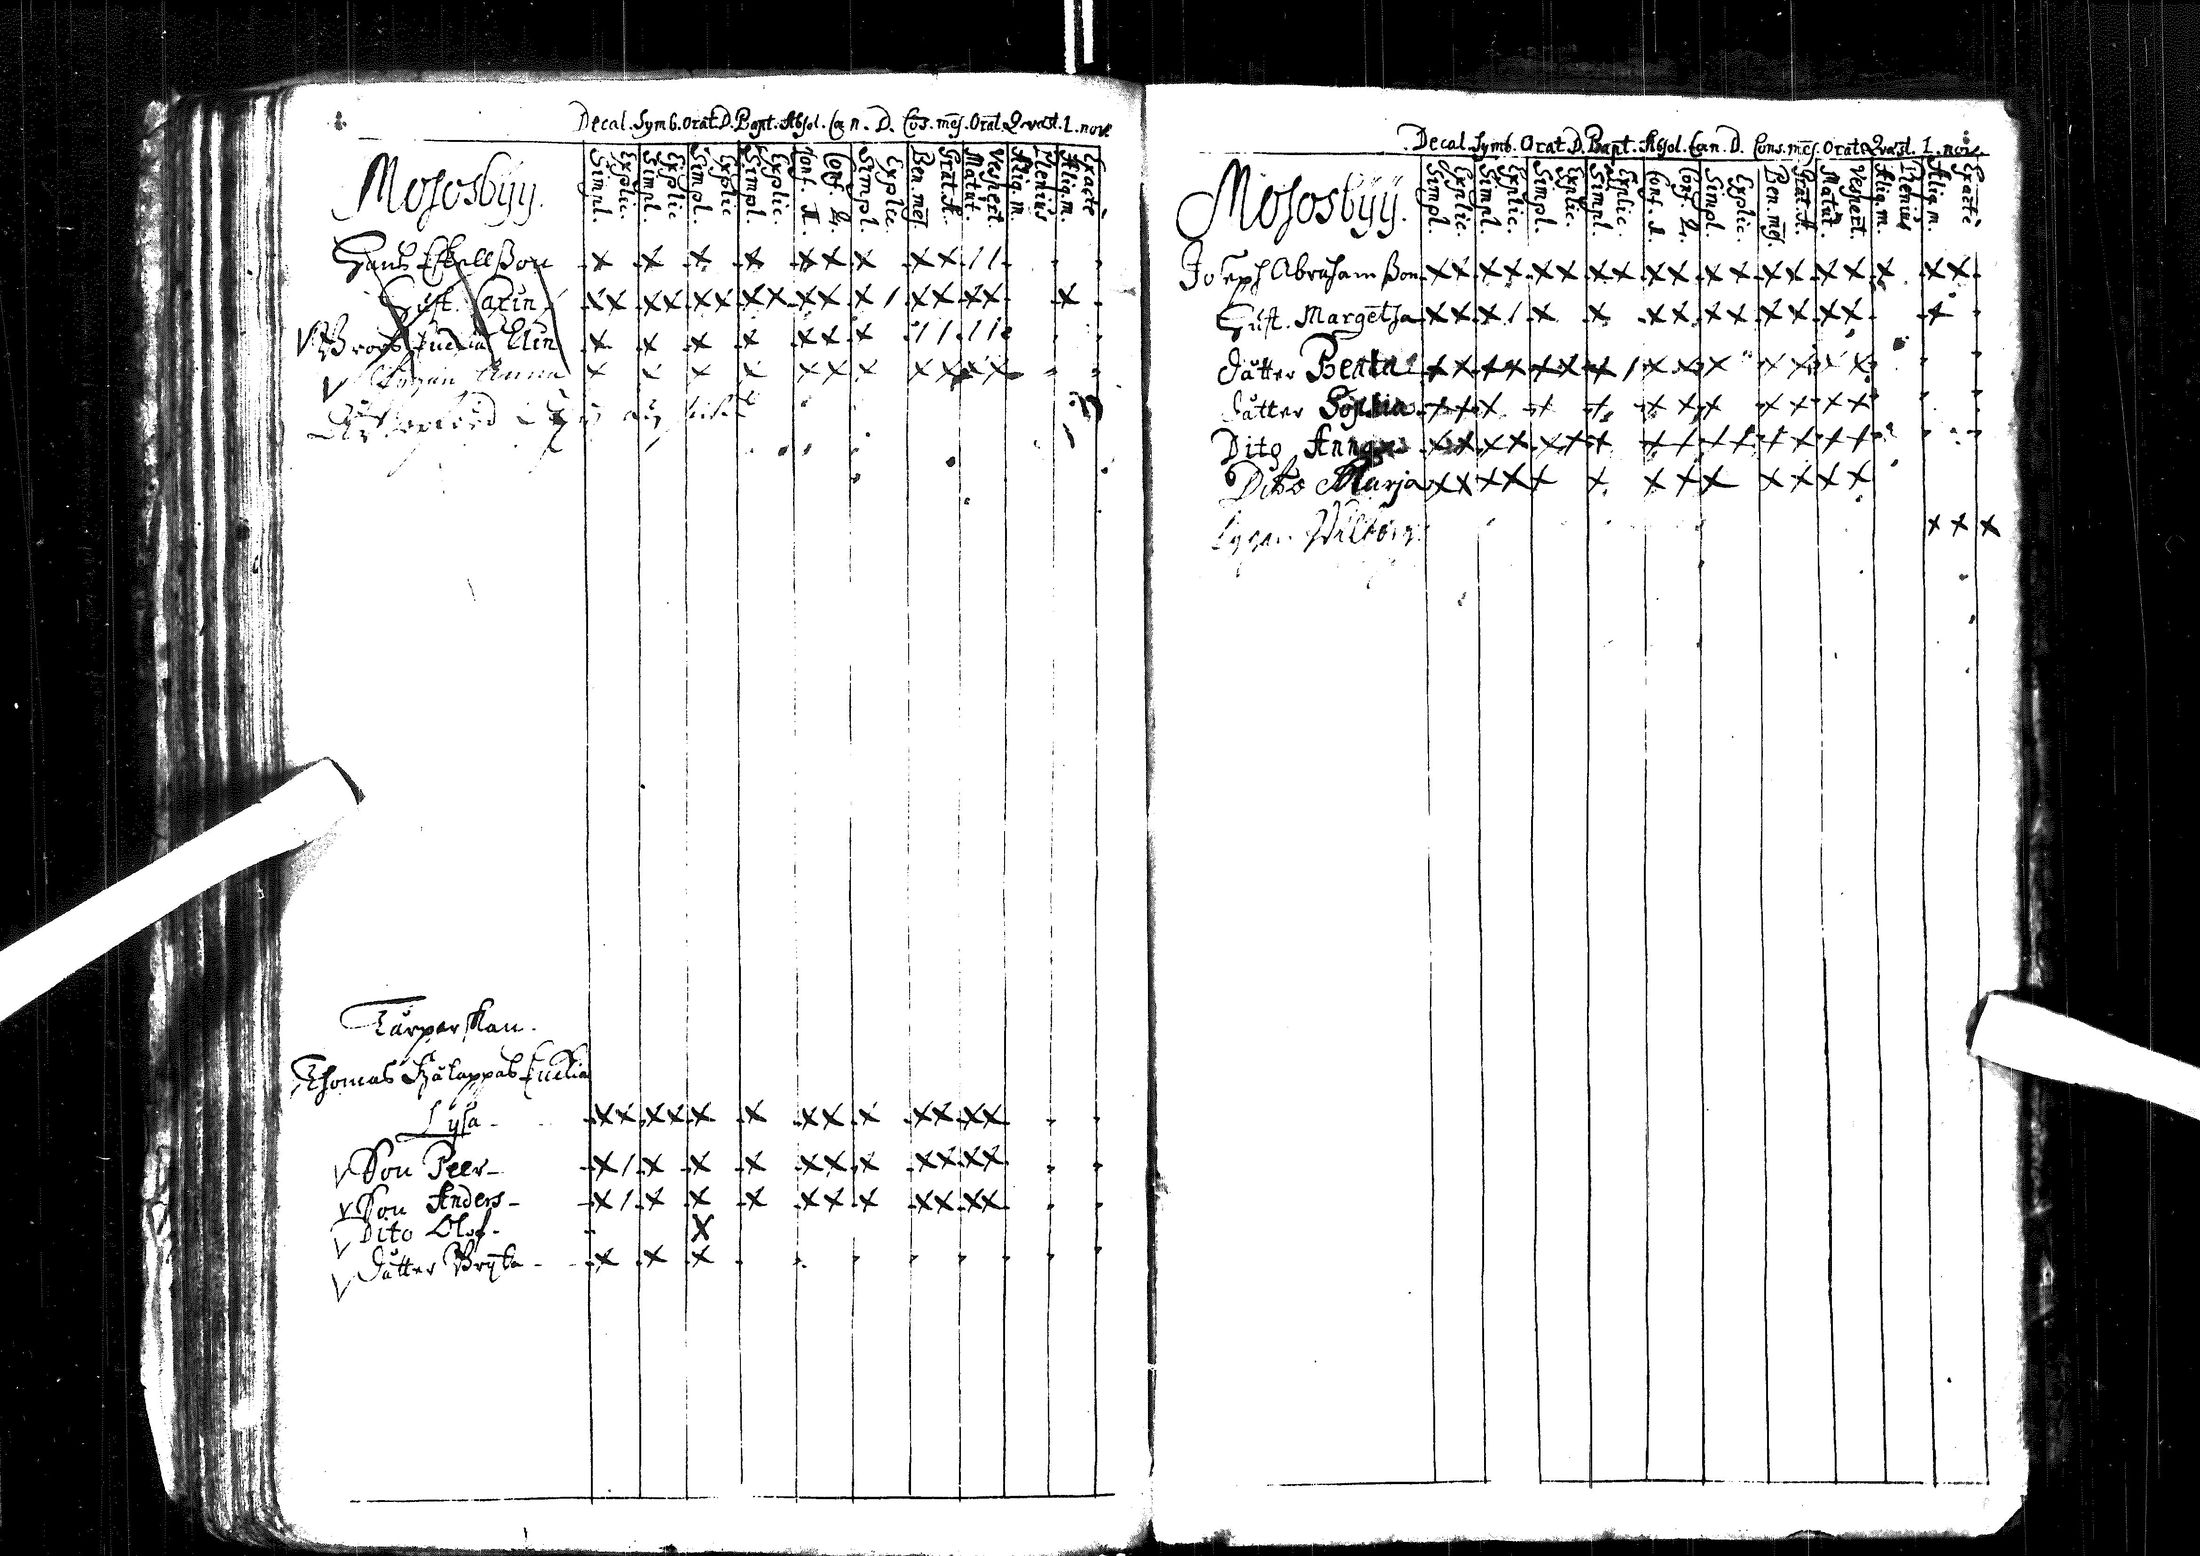 Decal. Symb. Orat. D. Bapt. Absol. Cœn. D. Cōs. mēs. Orāt. Qvæst. 1. nove
Simpl. Explic. Simpl. Explic Simpl. Explic Simpl. Explic. Conf. 1. Conf. 2. Simpl. Explic. Ben. mēs. Grat. A. Matut. Vespert. Aliq. m. Plenius Aliq. m. Exacte
Mososbÿÿ.
Hans Eskellsson × × × × × × × × × 1 1
Hust. Carin ×× ×× ×× ×× ×× × 1 ×× ×× ×
V Brors Enckia Elin × × × × × × × 1 1 1 1
V Pÿgan Anna × × × × × × × × × × ×
Tårparskan.
Thomas Enckia
Lÿsa - ×× ×× × × ×× × ×× ××
V Son Peer - × 1 × × × ×× × ×× ××
V Son Anders - × 1 × × × ×× × ×× ××
V Dito Olof - ×
V dåtter Brÿta - × × ×
Decal. Symb. Orat. D. Bapt. Absol. Cœn. D. Cons. mēs. Orat. Qvæst. 1. nove
Simpl. Explic. Simpl Explic. Simpl. Explic. Simpl. Explic. Conf. 1. Conf. 2. Simpl. Explic. Ben. mēs. Grat. A. Matut. Vespert. Aliq. m. Plenius Aliq. m. Exacte
Mososbÿÿ.
Joseph Abrahamsson ×× ×× ×× ×× ×× ×× ×× ×× × ××
Hust. Margetha ×× × 1 × × ×× ×× ×× ×× ×
dåtter Beata ×× ×× ×× × 1 ×× × ×× ××
dåtter Sophia ×× × × × ×× × ×× ××
Dito Anna ×× ×× ×× × ×× ×× ×× ××
Dito Marja ×× ×× × × ×× × ×× ××
× × ×